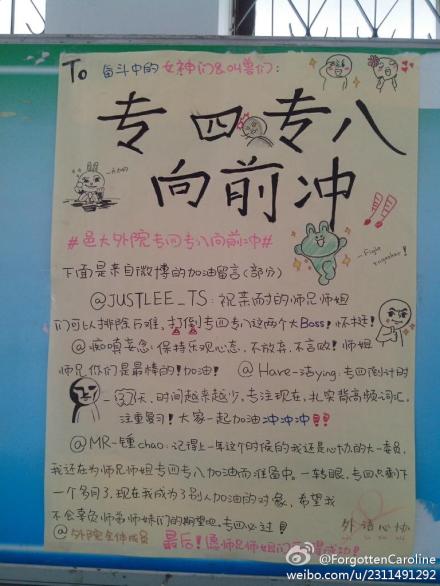 To 奋斗中的女神们&叫兽们:
专四专八
向前冲
#邑大外院专四专八向前冲#
Fight
下面是来自微博的加油留言(部分)
@JUSTLEE_TS:祝亲耐的师兄师姐
们可以排除万难,打倒专四专八这两个大Boss!怀挺!
@痴嗔妄念:保持乐观心态,不放弃,不言败!师姐
师兄你们是最棒的!加油! @Hare-洁ying:专四倒计时
天,时间越来越少,专注现在,扎实背高频词汇,
注重复习!大家一起加油冲冲冲!!
@MR-锺chao:记得上一年这个时候的我还是心协的大一委员,
我还在为师兄师姐专四专八加油而准备中。一转眼,专四只剩下
一个多月了,现在我成为了别人加油的对象,希望我
不会辜负师弟师妹们的期望吧,专四必过!
@外院全体成员
外语心协
最后!愿师兄师姐们
成功!
@ForgottenCaroline
weibo.com/u/2311491292